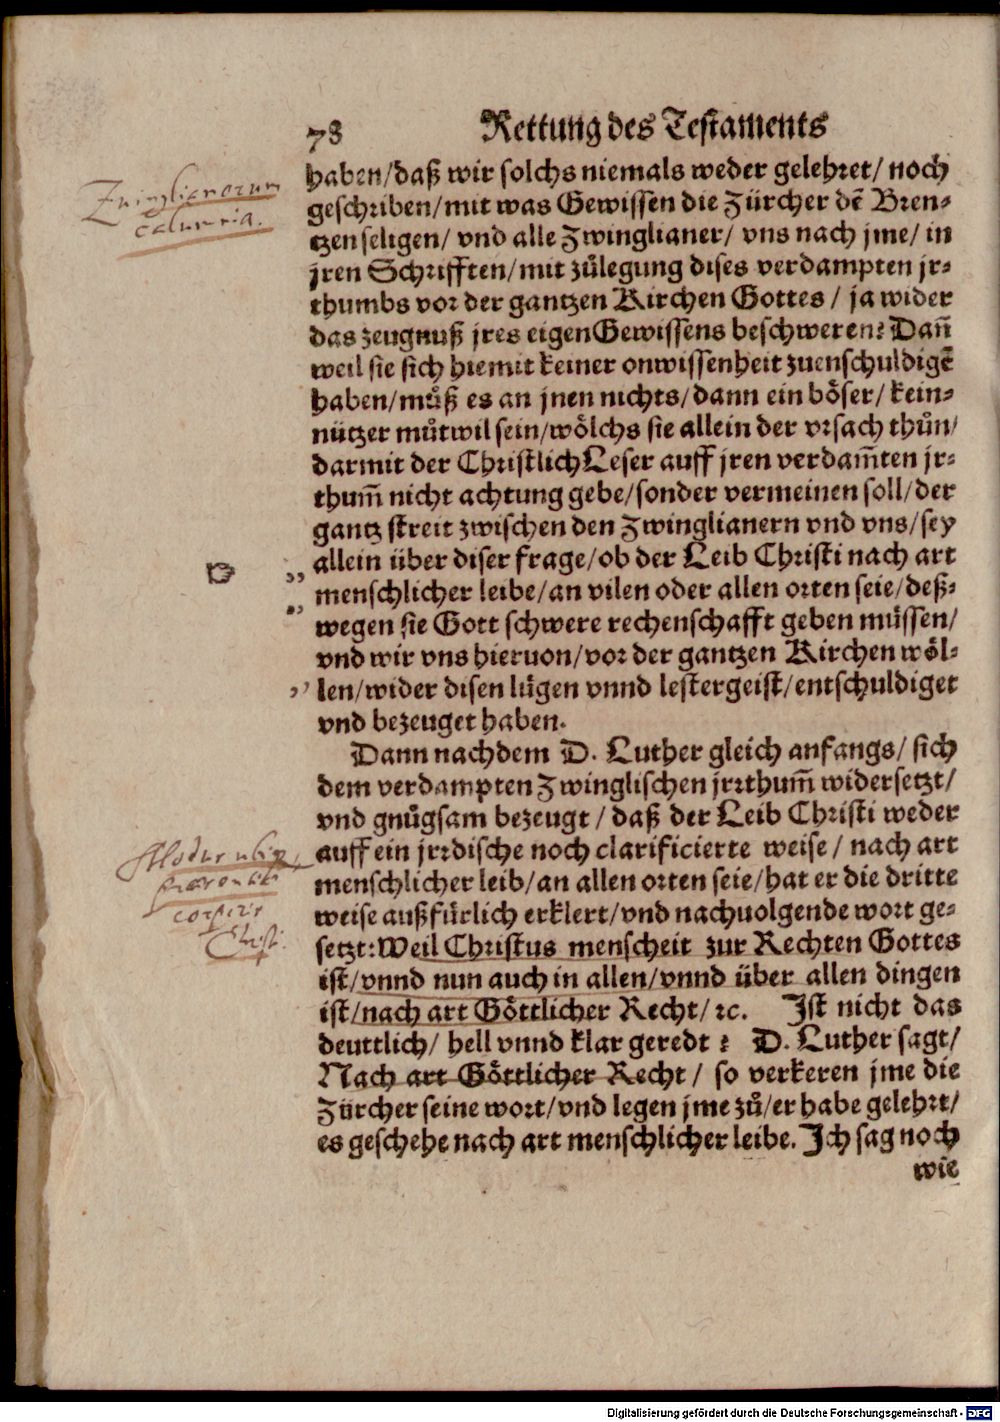 78 Rettung des Testaments
haben/daß wir solchs niemals weder gelehret/ noch
geschriben/mit was Gewissen die Zürcher dẽ Bren-
tzen seligen/ vnd alle Zwinglianer/ vns nach jme/ in
jren Schrifften/mit zůlegung dises verdampten jr-
thumbs vor der gantzen Kirchen Gottes / ja wider
das zeugnuß jres eigen Gewissens beschweren? Dañ
weil sie sich hiemit keiner onwissenheit zuenschuldigẽ
haben/můß es an jnen nichts/dann ein böser/ kein-
nützer můtwil sein/wölchs sie allein der vrsach thůn/
darmit der Christlich Leser auff jren verdam̃ten jr-
thum̃ nicht achtung gebe/sonder vermeinen soll/der
gantz streit zwischen den Zwinglianern vnd vns/sey
allein über diser frage/ob der Leib Christi nach art
menschlicher leibe/an vilen oder allen orten seie/deß-
wegen sie Gott schwere rechenschafft geben müssen/
vnd wir vns hieruon/vor der gantzen Kirchen wöl-
len/wider disen lügen vnnd lestergeist/entschuldiget
vnd bezeuget haben.
Dann nachdem D. Luther gleich anfangs/ sich
dem verdampten Zwinglischen jrrthum̃ widersetzt/
vnd gnůgsam bezeugt / daß der Leib Christi weder
auff ein jrrdische noch clarificierte weise / nach art
menschlicher leib/an allen orten seie/hat er die dritte
weise außfürlich erklert/vnd nachuolgende wort ge-
setzt: Weil Christus menscheit zur Rechten Gottes
ist/vnnd nun auch in allen/vnnd über allen dingen
ist/nach art Göttlicher Recht/ ꝛc. Ist nicht das
deuttlich/ hell vnnd klar geredt ? D. Luther sagt/
Nach art Göttlicher Recht / so verkeren jme die
Zürcher seine wort/vnd legen jme zů/er habe gelehrt/
es geschehe nach art menschlicher leibe. Ich sag noch
wie
Zwinglianorum
calumnia.
Modus
corporis
Christi.
Digitalisierung gefördert durch die Deutsche Forschungsgemeinschaft - DFG